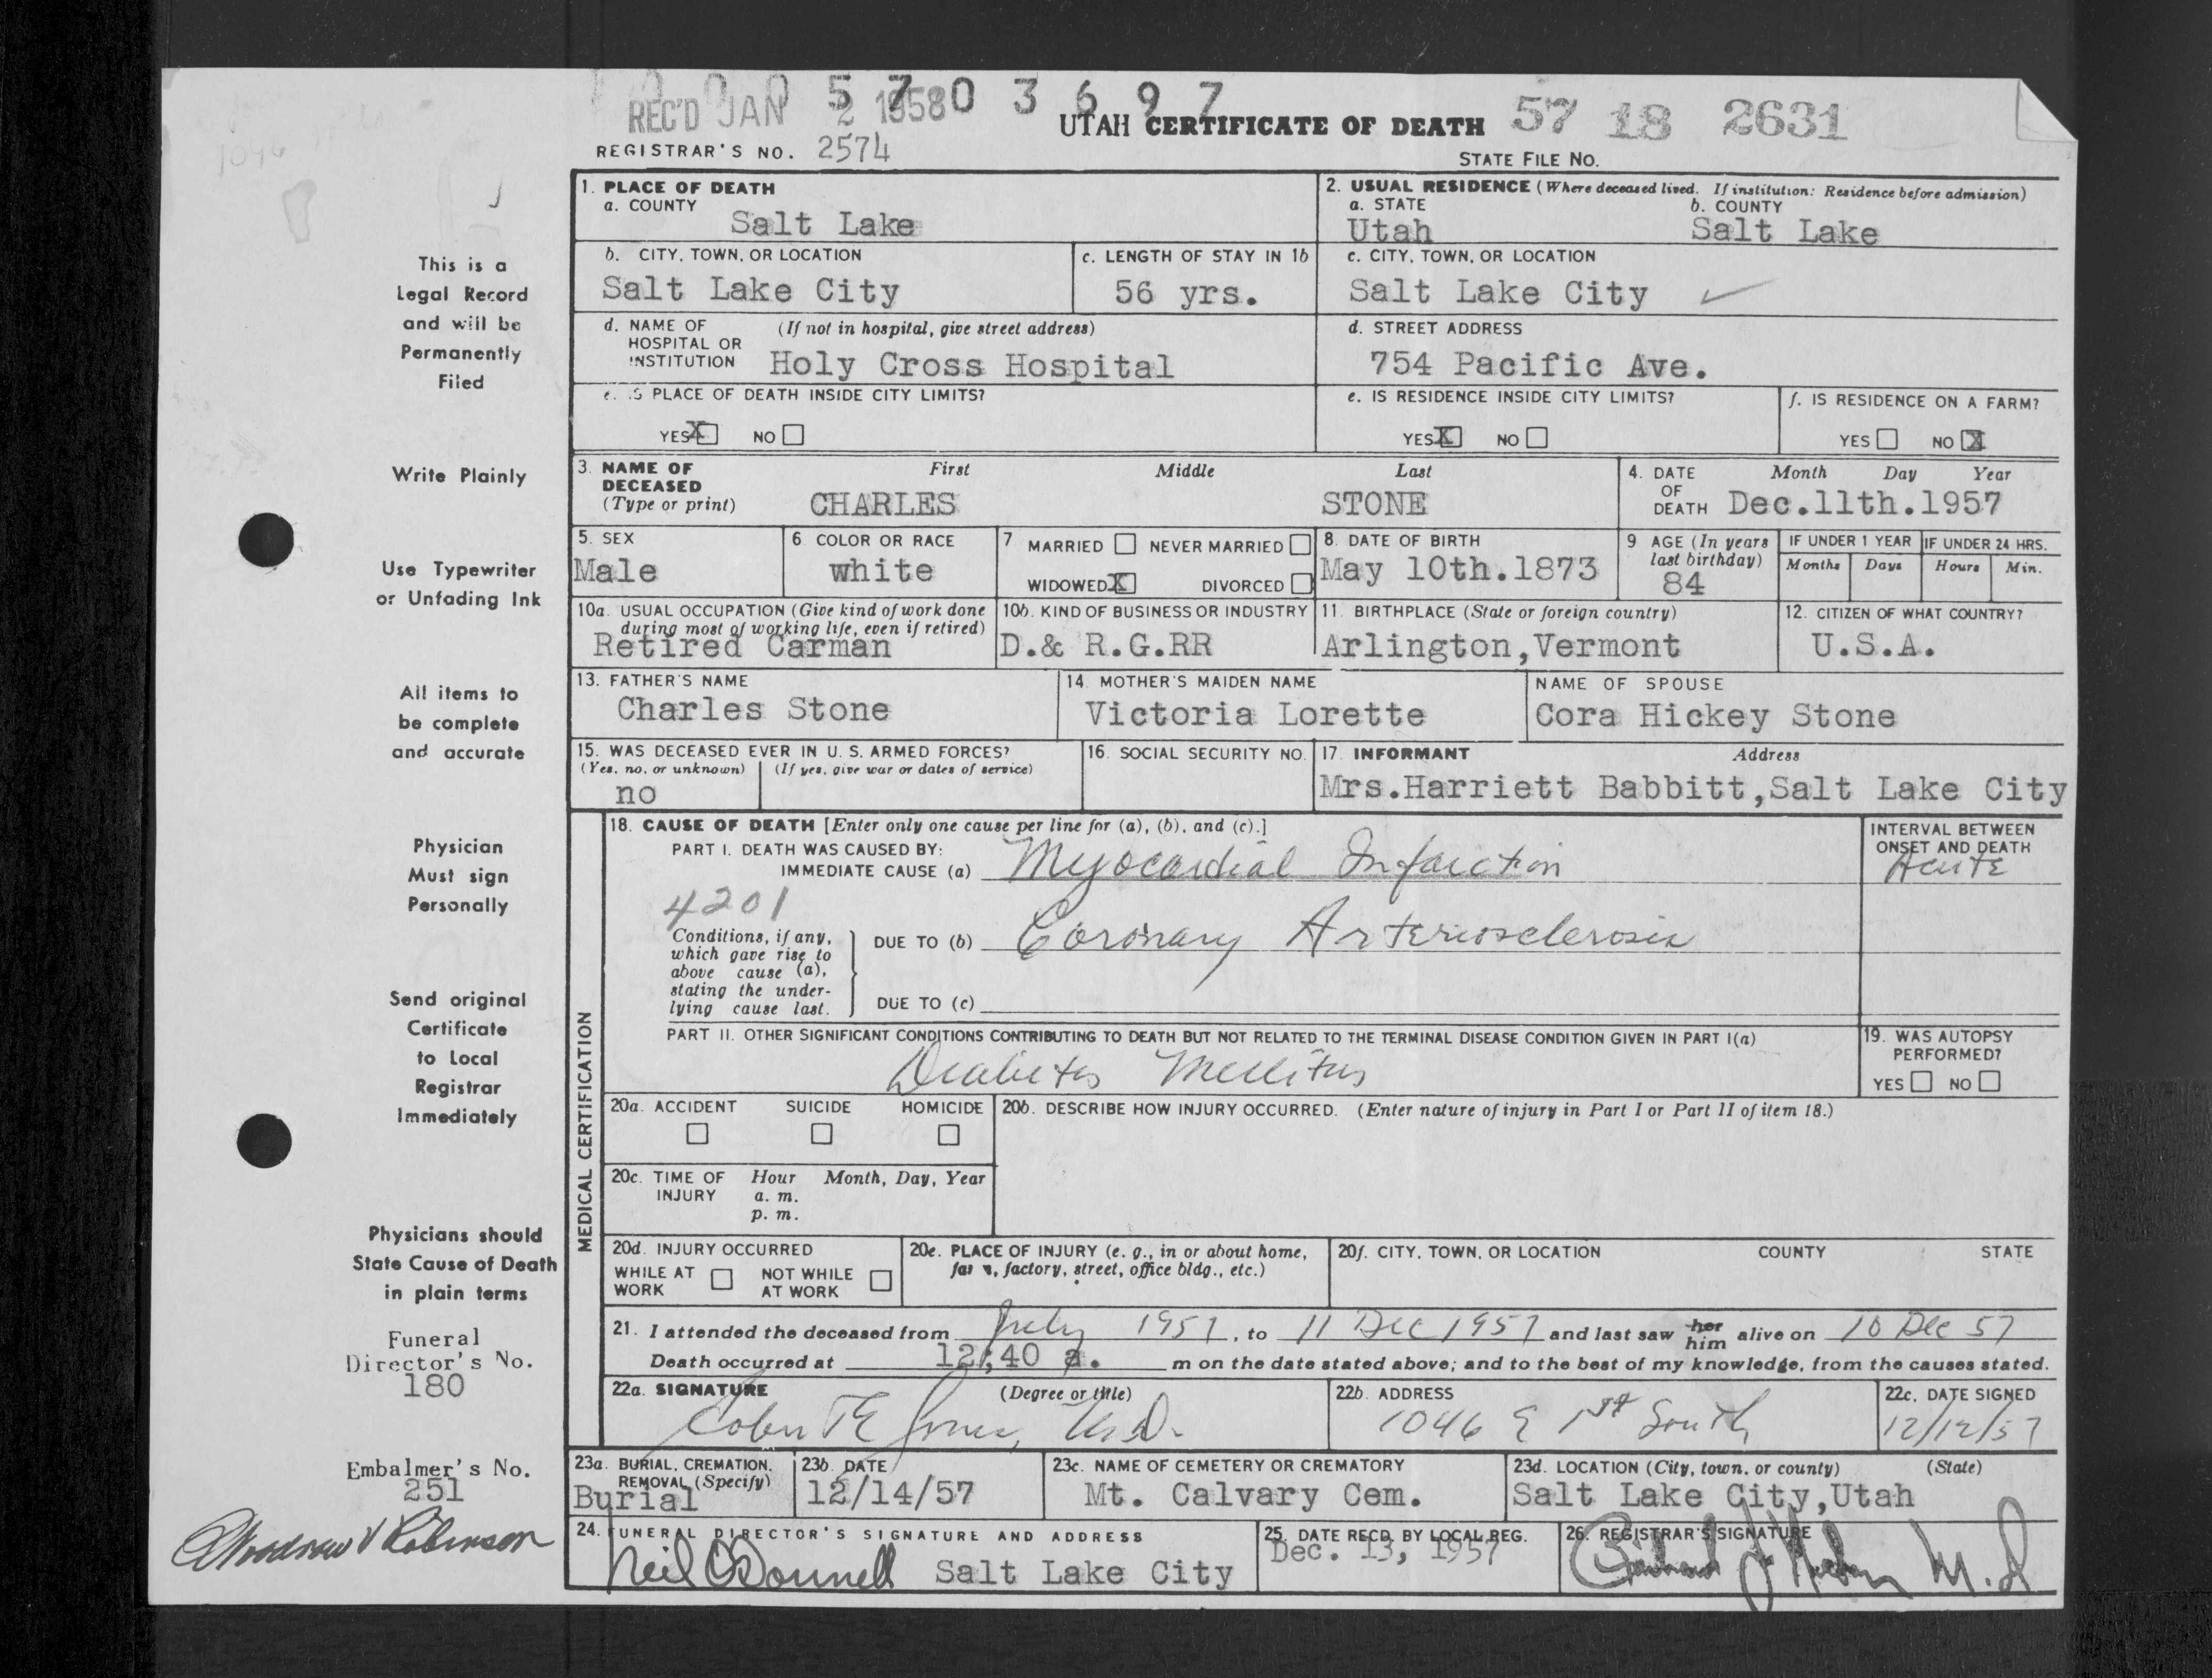 1 0 0 0 5 7 0 3 6 9 7
REC'D JAN 2 1958
UTAH CERTIFICATE OF DEATH 57 18 2631
REGISTRAR'S NO. 2574
STATE FILE NO.
1. PLACE OF DEATH
a. COUNTY
Salt Lake
2. USUAL RESIDENCE (Where deceased lived. If institution: Residence before admission)
a. STATE b. COUNTY
Utah Salt Lake
b. CITY, TOWN, OR LOCATION
Salt Lake City
c. LENGTH OF STAY IN 1b
56 yrs.
c. CITY, TOWN, OR LOCATION
Salt Lake City
d. NAME OF (If not in hospital, give street address)
HOSPITAL OR
INSTITUTION Holy Cross Hospital
d. STREET ADDRESS
754 Pacific Ave.
e. IS PLACE OF DEATH INSIDE CITY LIMITS?
YES X NO
e. IS RESIDENCE INSIDE CITY LIMITS?
YES X NO
f. IS RESIDENCE ON A FARM?
YES NO X
3. NAME OF DECEASED (Type or print)
First Middle Last
CHARLES STONE
4. DATE OF DEATH
Month Day Year
Dec.11th.1957
5. SEX
Male
6 COLOR OR RACE
white
7 MARRIED NEVER MARRIED
WIDOWED X DIVORCED
8. DATE OF BIRTH
May 10th.1873
9 AGE (In years last birthday)
84
IF UNDER 1 YEAR IF UNDER 24 HRS.
Months Days Hours Min.
10a. USUAL OCCUPATION (Give kind of work done
during most of working life, even if retired)
Retired Carman
10b. KIND OF BUSINESS OR INDUSTRY
D.& R.G.RR
11. BIRTHPLACE (State or foreign country)
Arlington,Vermont
12. CITIZEN OF WHAT COUNTRY?
U.S.A.
13. FATHER'S NAME
Charles Stone
14. MOTHER'S MAIDEN NAME
Victoria Lorette
NAME OF SPOUSE
Cora Hickey Stone
15. WAS DECEASED EVER IN U. S. ARMED FORCES?
(Yes, no, or unknown) (If yes, give war or dates of service)
no
16. SOCIAL SECURITY NO.
17. INFORMANT Address
Mrs.Harriett Babbitt,Salt Lake City
MEDICAL CERTIFICATION
18. CAUSE OF DEATH [Enter only one cause per line for (a), (b), and (c).]
PART I. DEATH WAS CAUSED BY:
IMMEDIATE CAUSE (a) Myocardial Infarction
INTERVAL BETWEEN
ONSET AND DEATH
Acute
4201
Conditions, if any,
which gave rise to
above cause (a),
stating the under-
lying cause last.
DUE TO (b) Coronary Arteriosclerosis
DUE TO (c)
PART II. OTHER SIGNIFICANT CONDITIONS CONTRIBUTING TO DEATH BUT NOT RELATED TO THE TERMINAL DISEASE CONDITION GIVEN IN PART I(a)
Diabetes Mellitus
19. WAS AUTOPSY
PERFORMED?
YES NO
20a. ACCIDENT SUICIDE HOMICIDE
20b. DESCRIBE HOW INJURY OCCURRED. (Enter nature of injury in Part I or Part II of item 18.)
20c. TIME OF INJURY
Hour Month, Day, Year
a. m.
p. m.
20d. INJURY OCCURRED
WHILE AT WORK NOT WHILE AT WORK
20e. PLACE OF INJURY (e. g., in or about home,
farm, factory, street, office bldg., etc.)
20f. CITY, TOWN, OR LOCATION COUNTY STATE
21. I attended the deceased from July 1957, to 11 Dec 1957 and last saw her him alive on 10 Dec 57
Death occurred at 12:40 a. m on the date stated above; and to the best of my knowledge, from the causes stated.
22a. SIGNATURE (Degree or title)
Jones, M.D.
22b. ADDRESS
1046 E 1st South
22c. DATE SIGNED
12/12/57
23a. BURIAL, CREMATION,
REMOVAL (Specify)
Burial
23b. DATE
12/14/57
23c. NAME OF CEMETERY OR CREMATORY
Mt. Calvary Cem.
23d. LOCATION (City, town, or county) (State)
Salt Lake City,Utah
24. FUNERAL DIRECTOR'S SIGNATURE AND ADDRESS
Neil O'Donnell Salt Lake City
25. DATE RECD. BY LOCAL REG.
Dec. 13, 1957
26. REGISTRAR'S SIGNATURE
M.D
This is a
Legal Record
and will be
Permanently
Filed
Write Plainly
Use Typewriter
or Unfading Ink
All items to
be complete
and accurate
Physician
Must sign
Personally
Send original
Certificate
to Local
Registrar
Immediately
Physicians should
State Cause of Death
in plain terms
Funeral
Director's No.
180
Embalmer's No.
251
Woodrow V Robinson